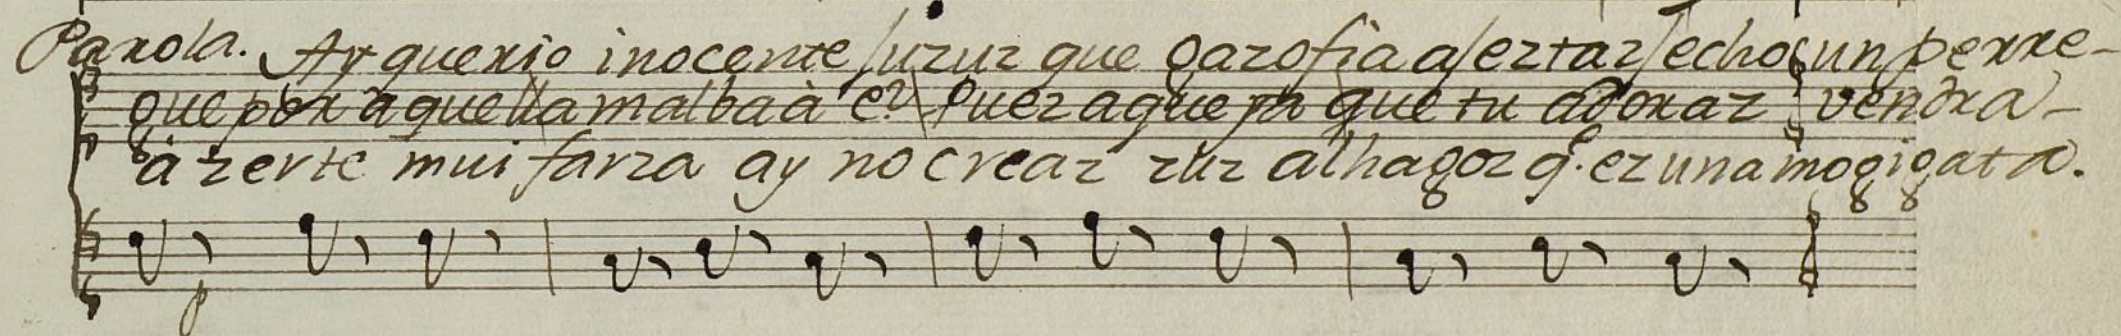 Parola. Ay querío inocente Juzuz que gazofia a Jeztaz Jecho un perre-
que por aquella malbaà e? Puez aqueya que tu adoraz vendrà-
à zerte mui farza ay no creaz zuz alhagoz q.e ez una mogigata.